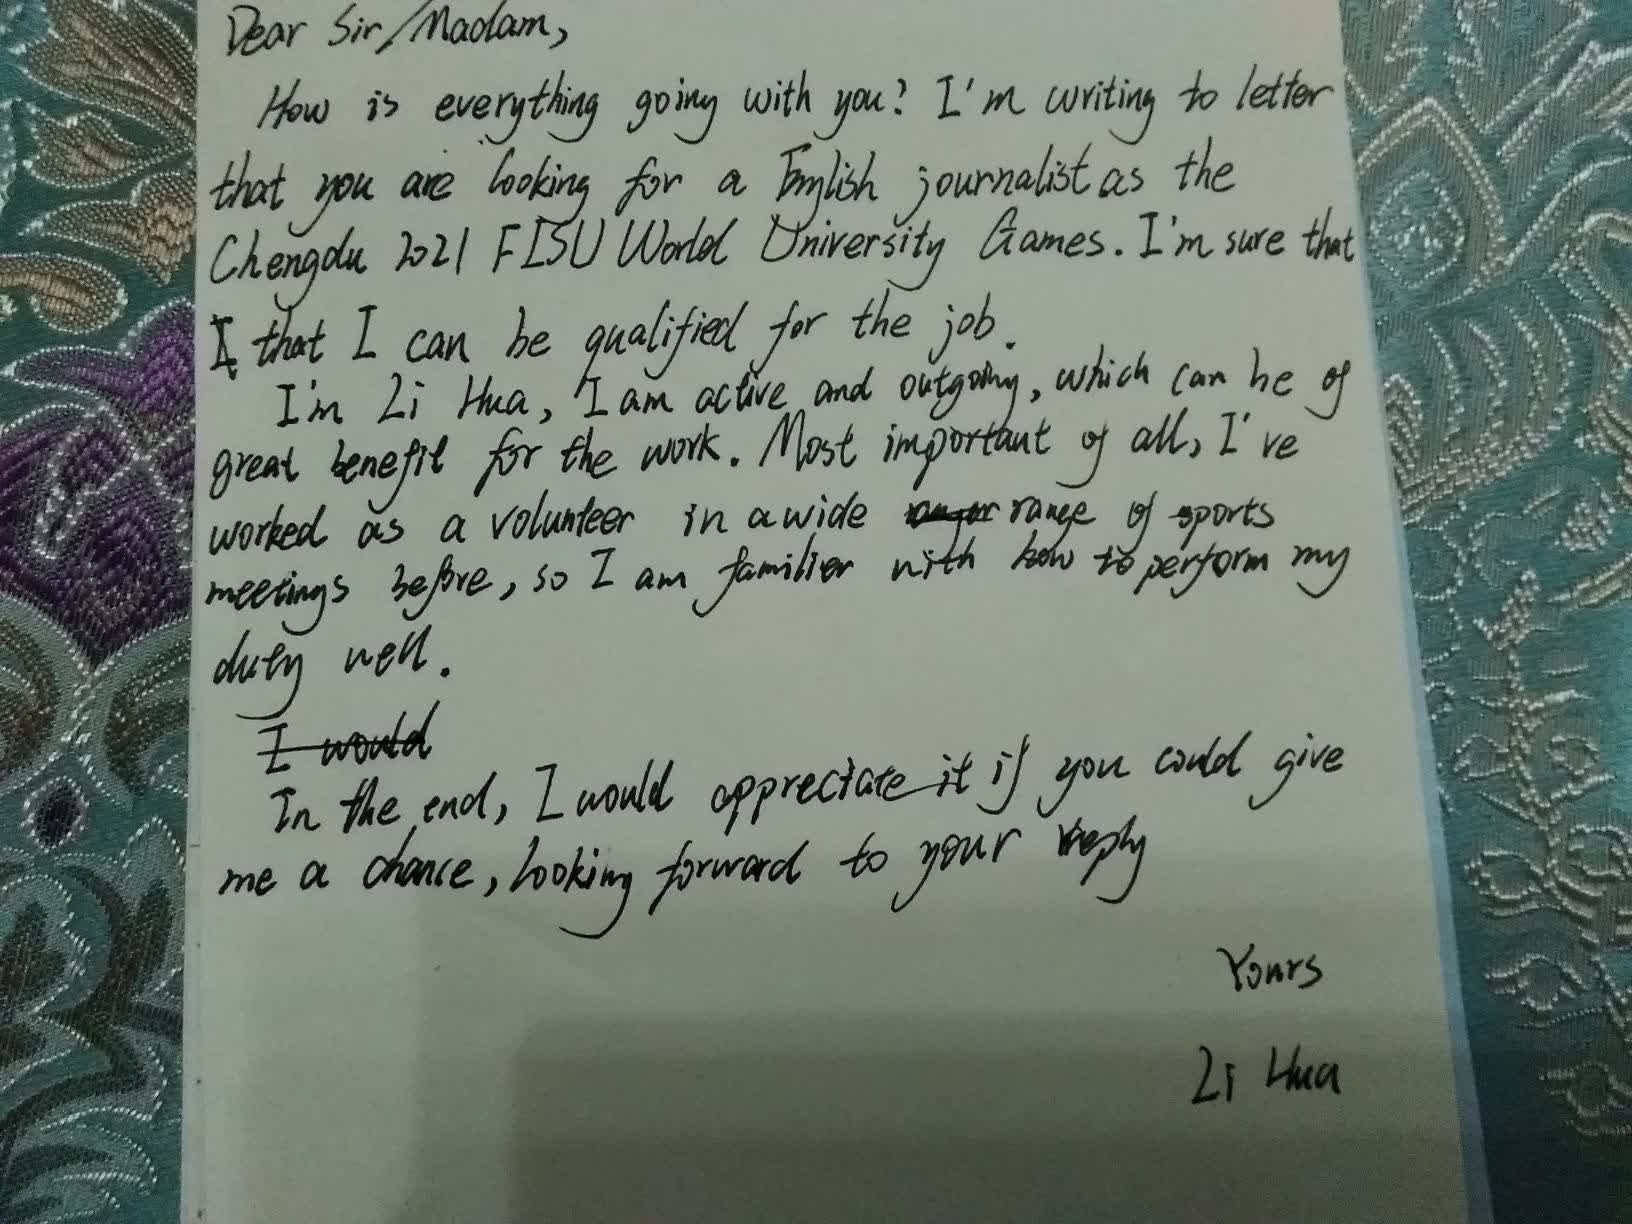 Dear Sir/Madam,
How is everything going with you? I'm writing to letter
that you are looking for a English journalist as the
Chengdu 2021 FISU World University Games. I'm sure that
I that I can be qualified for the job.
I'm Li Hua, I am active and outgoing, which can be of
great benefit for the work. Most important of all, I've
worked as a volunteer in a wide range of sports
meetings before, so I am familier with how to perform my
duty well.
I would
In the end, I would appreciate it if you could give
me a chance, looking forward to your reply
Yours
Li Hua